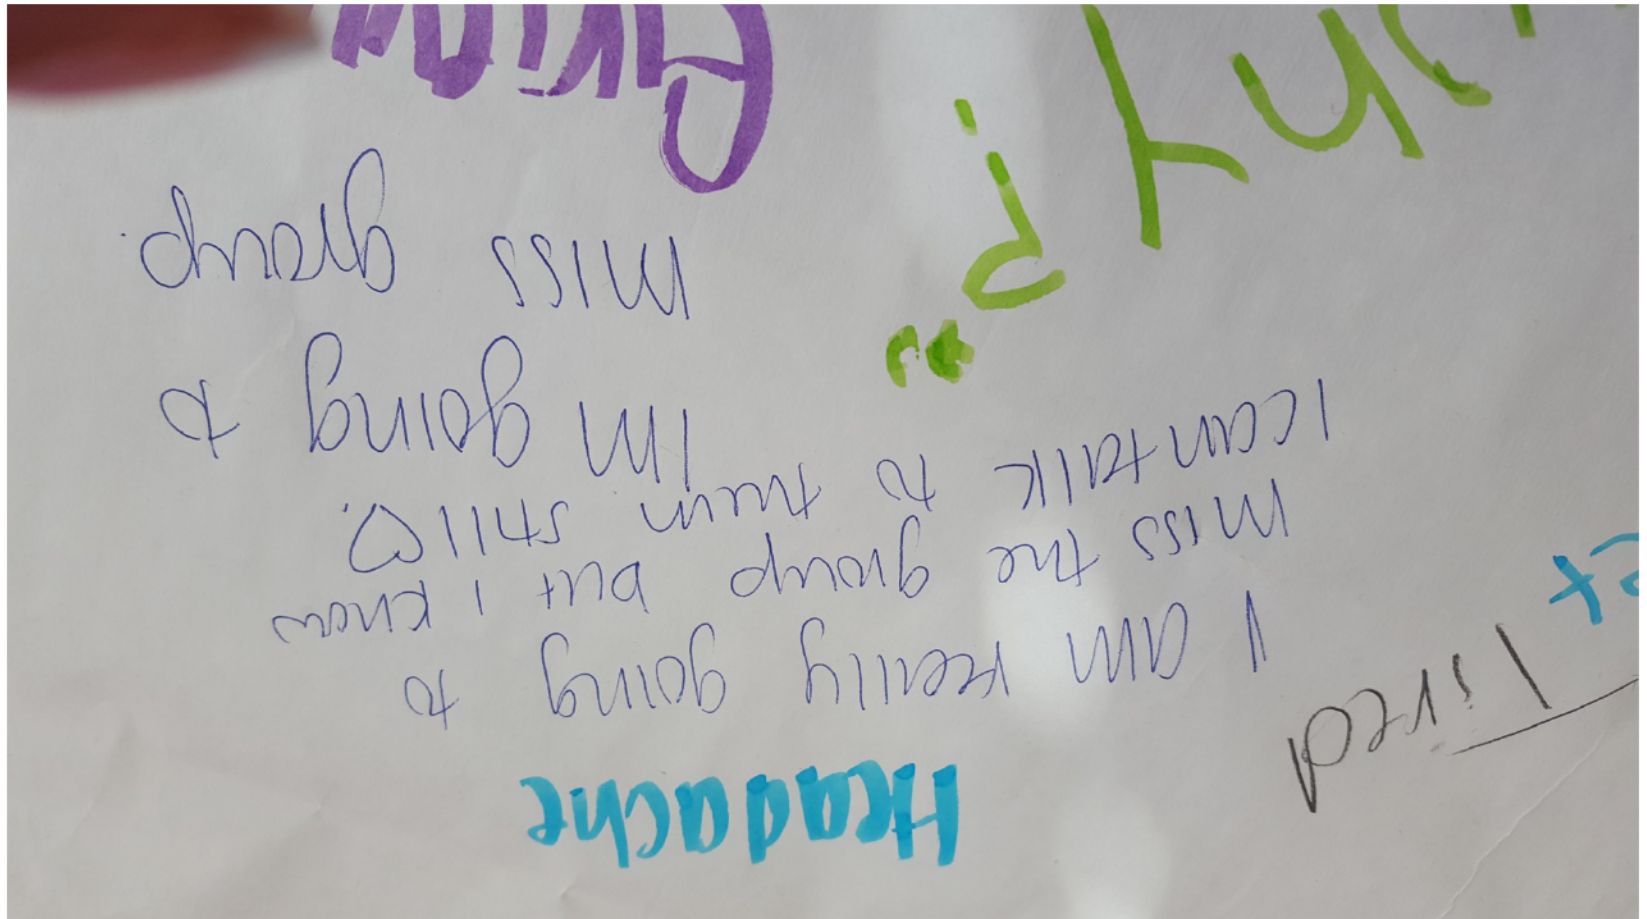 Headache
Tired
I am really going to
miss the group but I know
I can talk to them still
Im going to
miss group.